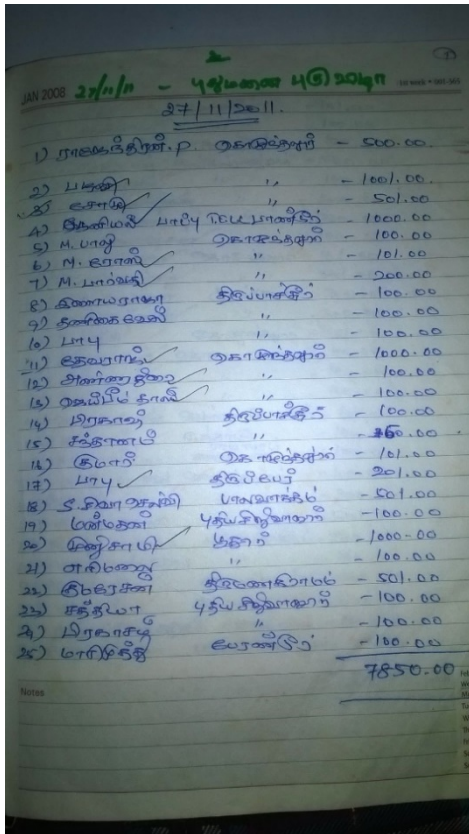 1
JAN 2008 27/11/11 - புதுமனை புகுவிழா
27/11/2011.
1) ராஜேந்திரன்.P கொளத்தூர் - 500.00
2) பழனி " - 1001.00
3) " - 501.00
4) பாப்பு - 1000.00
5) M. பாலு கொளத்தூர் - 100.00
6) M. ரோஸி " - 101.00
7) M. பார்வதி " - 200.00
8) இளையராஜா திருப்பாச்சூர் - 100.00
9) தணிகைவேல் " - 100.00
10) பாபு " - 100.00
11) தேவராஜ் கொளத்தூர் - 1000.00
12) அண்ணாதுரை " - 100.00
13) ஜெய்பீம் தாஸ் " - 100.00
14) பிரகாஷ் திருப்பாச்சூர் - 100.00
15) சந்தானம் " - 00
16) குமார் கொளத்தூர் - 101.00
17) பாபு திருப்பேர் - 201.00
18) S. சிவா செல்வி பாலவாக்கம் - 501.00
19) மன்மதன் புதிய - 100.00
20) முனிசாமி - 1000-00
21) எழிமலை " - 100.00
22) குமரேசன் - 501.00
23) சத்தியா புதிய - 100.00
24) பிரகாசம் " - 100.00
25) மாரிமுத்து பேரண்டூர் - 100.00
7850.00
Notes